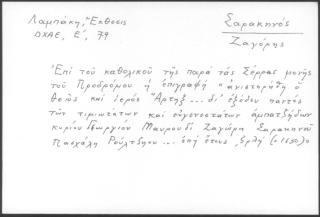 Λαμπάκη, Ἔκθεσις
ΔΧΑΕ, Ε', 79
Σαρακηνός
Ζαγόρης
Ἐπί τοῦ καθολικοῦ τῆς παρά τάς Σέρρας μονῆς
τοῦ Προδρόμου ἡ ἐπιγραφή "ἀνιστορήθη ὁ
θεῖος καί ἱερός Νάρτηξ ... δι' ἐξόδου παντός
τῶν τιμιωτάτων καί εὐγενεστάτων ἀμπατζήδων
κυρίου Γεωργίου Μαυρουδῆ Ζαγώρη Σαρακηνοῦ
Πασχάλη ... ἐπί ἔτους ζρλη (=1630)"